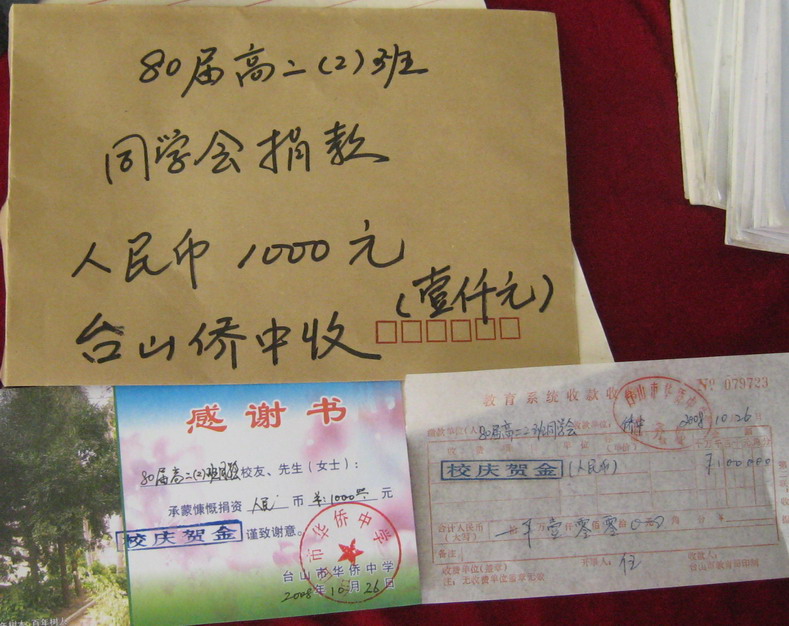 80届高二(2)班
同学会捐款
人民币 1000元
(壹仟元)
台山侨中收
感谢书
80届高二(2)班 校友、先生(女士):
承蒙慷慨捐资 人民 币 1000 元
校庆贺金 谨致谢意。
市华侨中学
台山市华侨中学
2008年10月26日
教育系统收款收
No 079723
80届高二2班同学会
2008 10 26
校庆贺金 (人民币) ¥100000
合计人民币
(大写)
备注
收费单位(盖章)
开单人:
收款人:
注:无收费单位盖章无效
台山市教育局印制
百年树人